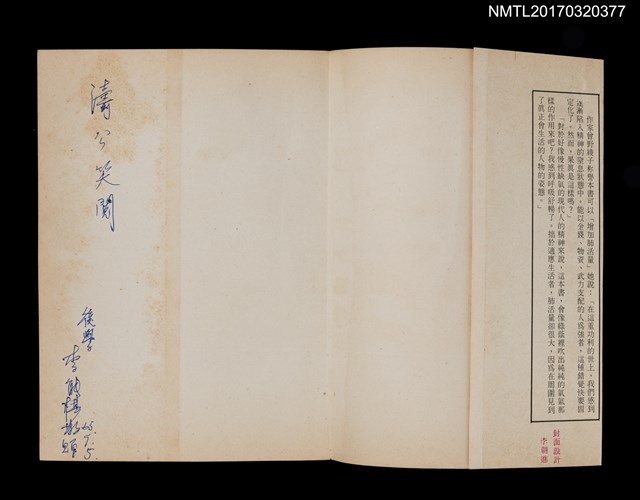 NMTL20170320377
作家曾野綾子称譽本書可以「增加肺活量」她說：「在這重功利的世上，我們感到
逐漸陷入精神的窒息狀態中。能以金錢、物資、武力支配的人爲強者，這種錯覺快要固
定化了。然而，果眞是這樣嗎？
「對於好像慢性缺氧的現代人的精神來說，這本書，會像綠蔭裡吹出純純的氧氣那
樣的作用來吧？我感到呼吸舒暢了。拙於適應生活者，肺活量卻很大，因爲在周圍見到
了眞正會生活的人物的姿態。」
封面設計
濤公笑閱
後學
李